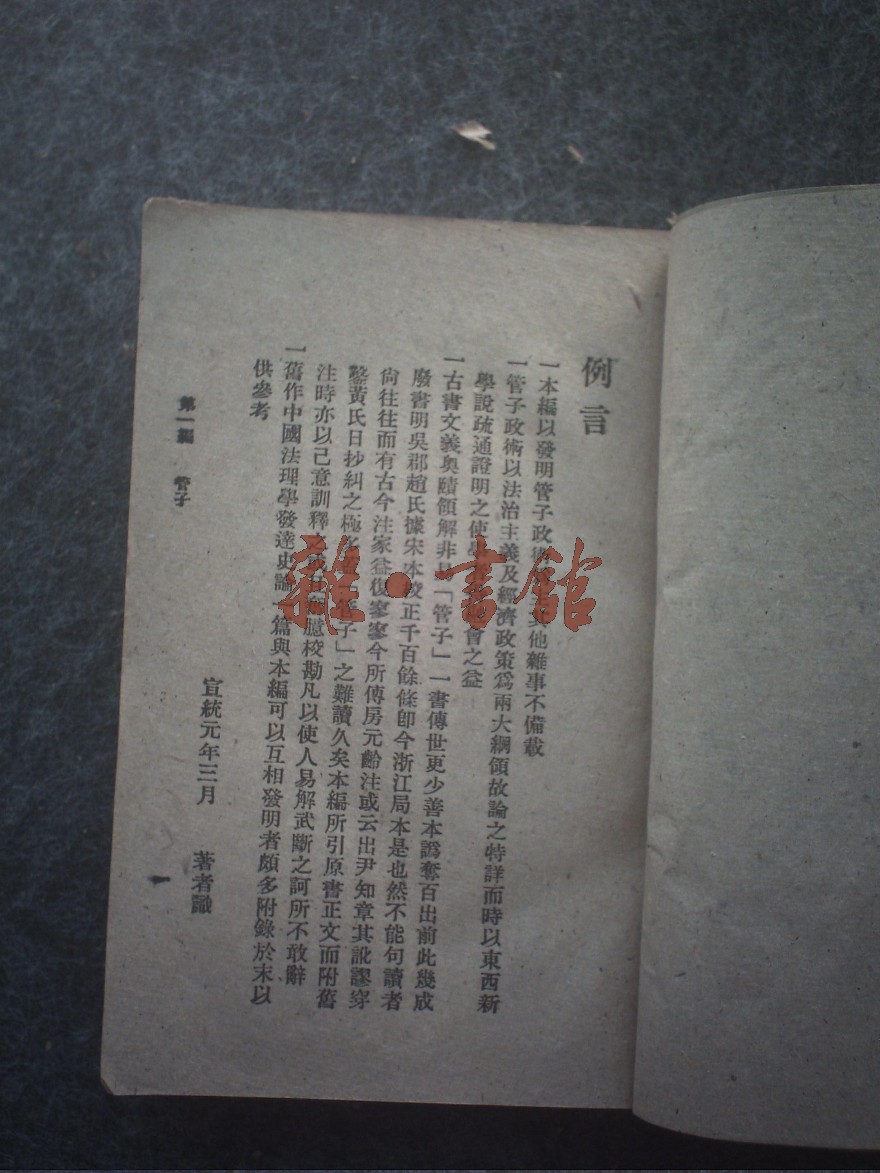 例言
一本編以發明管子政術爲主其他雜事不備載
一管子政術以法治主義及經濟政策爲兩大綱領故論之特詳而時以東西新
學說疏通證明之使學會之益
一古書文義奧賾領解非易「管子」一書傳世更少善本譌奪百出前此幾成
廢書明吳郡趙氏據宋本校正千百餘條卽今浙江局本是也然不能句讀者
尙往往而有古今注家益復寥寥今所傳房元齡注或云出尹知章其訛謬穿
鑿黃氏日抄糾之極多「管子」之難讀久矣本編所引原書正文而附舊
注時亦以己意訓釋之或且臆校勘凡以使人易解武斷之訶所不敢辭
一舊作中國法理學發達史論一篇與本編可以互相發明者頗多附錄於末以
供參考
宣統元年三月 著者識
第一編 管子
一
雜·書館